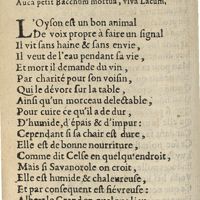 Auca petit Bacchum mortua, viva Lacum,
L'Oyson est un bon animal
De voix propre à faire un signal
Il vit sans haine & sans envie,
Il veut de l'eau pendant sa vie,
Et mort il demande du vin,
Par charité pour son voisin,
Qui le dévors sur la table,
Ainsi qu'un morceau delectable,
Pour cuire ce qu'il a de dur,
D'humide, d'épais & d'impur:
Cependant si sa chair est dure,
Elle est de bonne nourriture,
Comme dit Celse en quelqu'endroit,
Mais si Savanorole on croit,
Elle est humide & chaleureuse,
Et par consequent est fiévreuse: